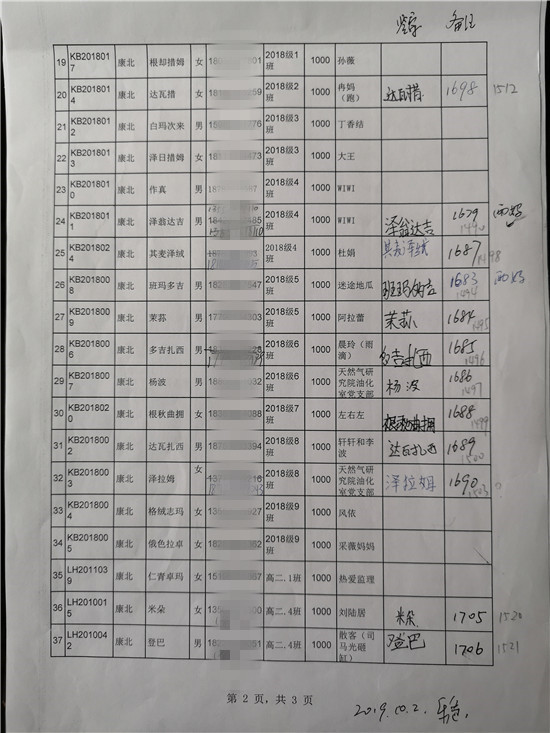 签字 备注
19 KB2018017 康北 根却措姆 女 2018级1班 1000 孙薇
20 KB2018016 康北 达瓦措 女 2018级2班 1000 冉妈（跑） 达瓦措 1698 1512
21 KB2018012 康北 白玛次来 男 2018级3班 1000 丁香结
22 KB2018013 康北 泽日措姆 女 2018级3班 1000 大王
23 KB2018010 康北 作真 男 2018级4班 1000 WIWI
24 KB2018011 康北 泽翁达吉 男 2018级4班 1000 WIWI 泽翁达吉 1679 1490
25 KB2018024 康北 其麦泽绒 男 2018级4班 1000 杜娟 1687 1498
26 KB2018008 康北 班玛多吉 男 2018级5班 1000 迷途地瓜 1683 1494
27 KB2018009 康北 茉荪 男 2018级5班 1000 阿拉蕾 茉荪 1684 1495
28 KB2018006 康北 多吉扎西 男 2018级6班 1000 晨玲（雨滴） 多吉扎西 1685 1496
29 KB2018007 康北 杨波 男 2018级6班 1000 天然气研究院油化室党支部 杨波 1686 1497
30 KB2018020 康北 根秋曲拥 女 2018级7班 1000 左右左 根秋曲拥 1688 1499
31 KB2018002 康北 达瓦扎西 男 2018级8班 1000 轩轩和李波 达瓦扎西 1689 1500
32 KB2018003 康北 泽拉姆 女 2018级8班 1000 天然气研究院油化室党支部 泽拉姆 1690
33 KB2018004 康北 格绒志玛 女 2018级9班 1000 风依
34 KB2018005 康北 俄色拉卓 女 2018级9班 1000 采薇妈妈
35 LH2011039 康北 仁青卓玛 女 高二.1班 1000 热爱监理
36 LH2010015 康北 米朵 女 高二.4班 1000 刘陆居 米朵 1705 1520
37 LH2010042 康北 登巴 男 高二.4班 1000 散客（司马光砸缸） 登巴 1706 1521
第 2 页，共 3 页
2019.10.2.